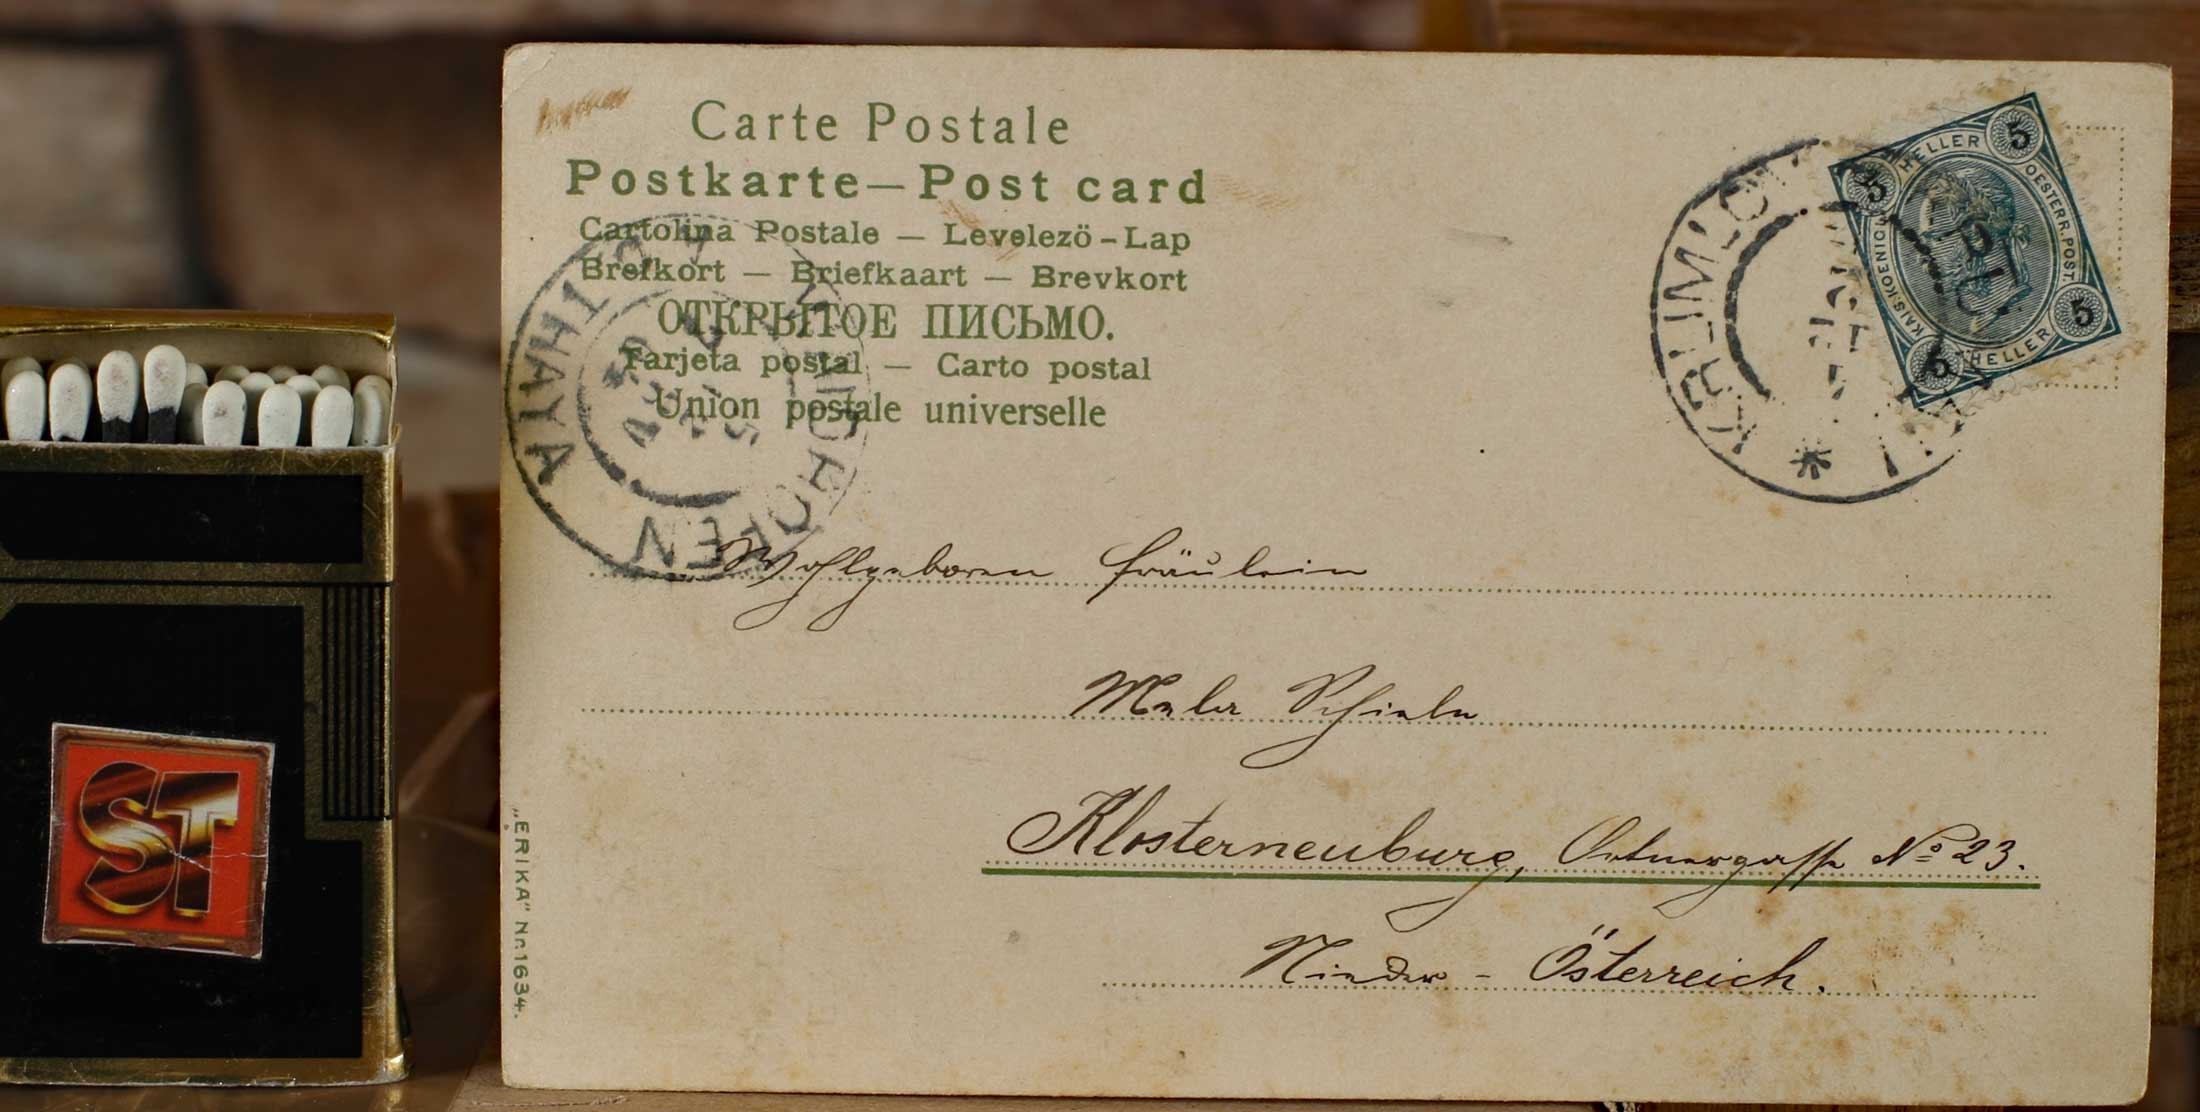 Carte Postale
Postkarte — Post card
Cartolina Postale — Levelezö - Lap
Brefkort — Briefkaart — Brevkort
ОТКРЫТОЕ ПИСЬМО.
Tarjeta postal — Carto postal
Union postale universelle
THAYA
HOFEN
KRUMLO
*
5 HELLER 5
KAIS. KOENIGL. OESTERR. POST.
5 HELLER 5
Wohlgeboren Fräulein
Mela Schiele
Klosterneuburg, Ortnergasse № 23.
Nieder - Österreich.
„ERIKA" Nr. 1634.
ST